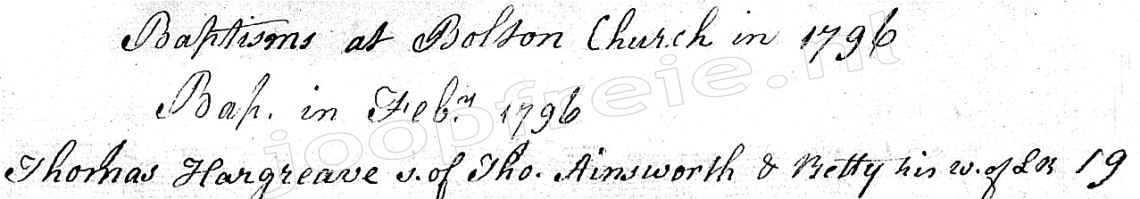 Baptisms at Bolton Church in 1796
Bap. in Febry 1796
joopfreie.nl
Thomas Hargreave s. of Tho. Ainsworth & Betty his w. of LB 19